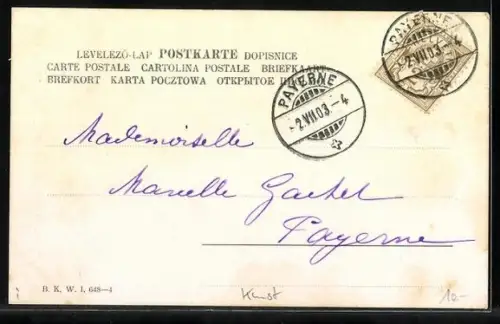 LEVELEZŐ-LAP POSTKARTE DOPISNICE
CARTE POSTALE CARTOLINA POSTALE BRIEFKAART
BREFKORT KARTA POCZTOWA ОТКРЫТОЕ
PAYERNE
-2.VII.03.-4
PAYERNE
-2.VII.03.-4
Mademoiselle
Marcelle
Payerne
B. K. W. I. 648-4
Kunst
10.-